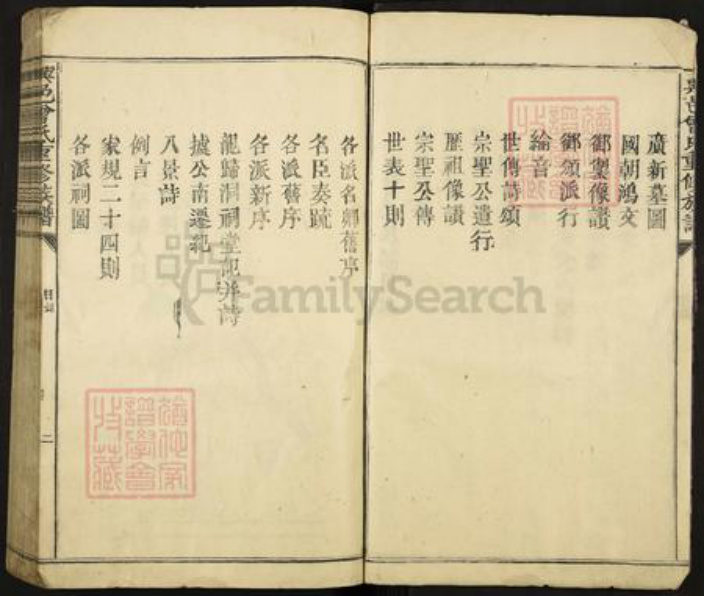 廣新墓圖
國朝鴻文
御製像讃
御頒派行
綸音
世傳詩頌
宗聖公遺行
歷祖像讃
宗聖公傳
世表十則
各派名鄉舊序
名臣奏疏
各派舊序
各派新序
龍歸洞祠堂記并詩
據公南遷記
八景詩
例言
家規二十四則
各派祠圖
曾氏重修族譜
目錄
二
FamilySearch
譜學會
特藏